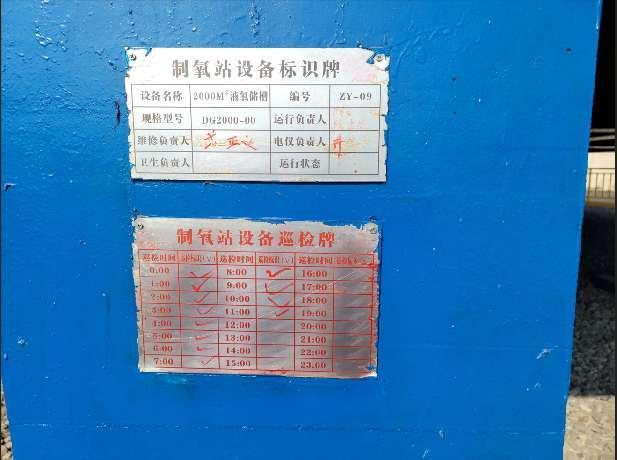 制氧站设备标识牌
设备名称 2000M³液氧储槽 编号 ZY-09
规格型号 DG2000-00 运行负责人
维修负责人 电仪负责人
卫生负责人 运行状态
制氧站设备巡检牌
巡检时间 巡检时间 巡检时间
0:00 ✓ 8:00 ✓ 16:00
1:00 ✓ 9:00 ✓ 17:00
2:00 ✓ 10:00 ✓ 18:00
3:00 ✓ 11:00 ✓ 19:00
4:00 12:00 20:00
5:00 13:00 21:00
6:00 14:00 22:00
7:00 15:00 23:00